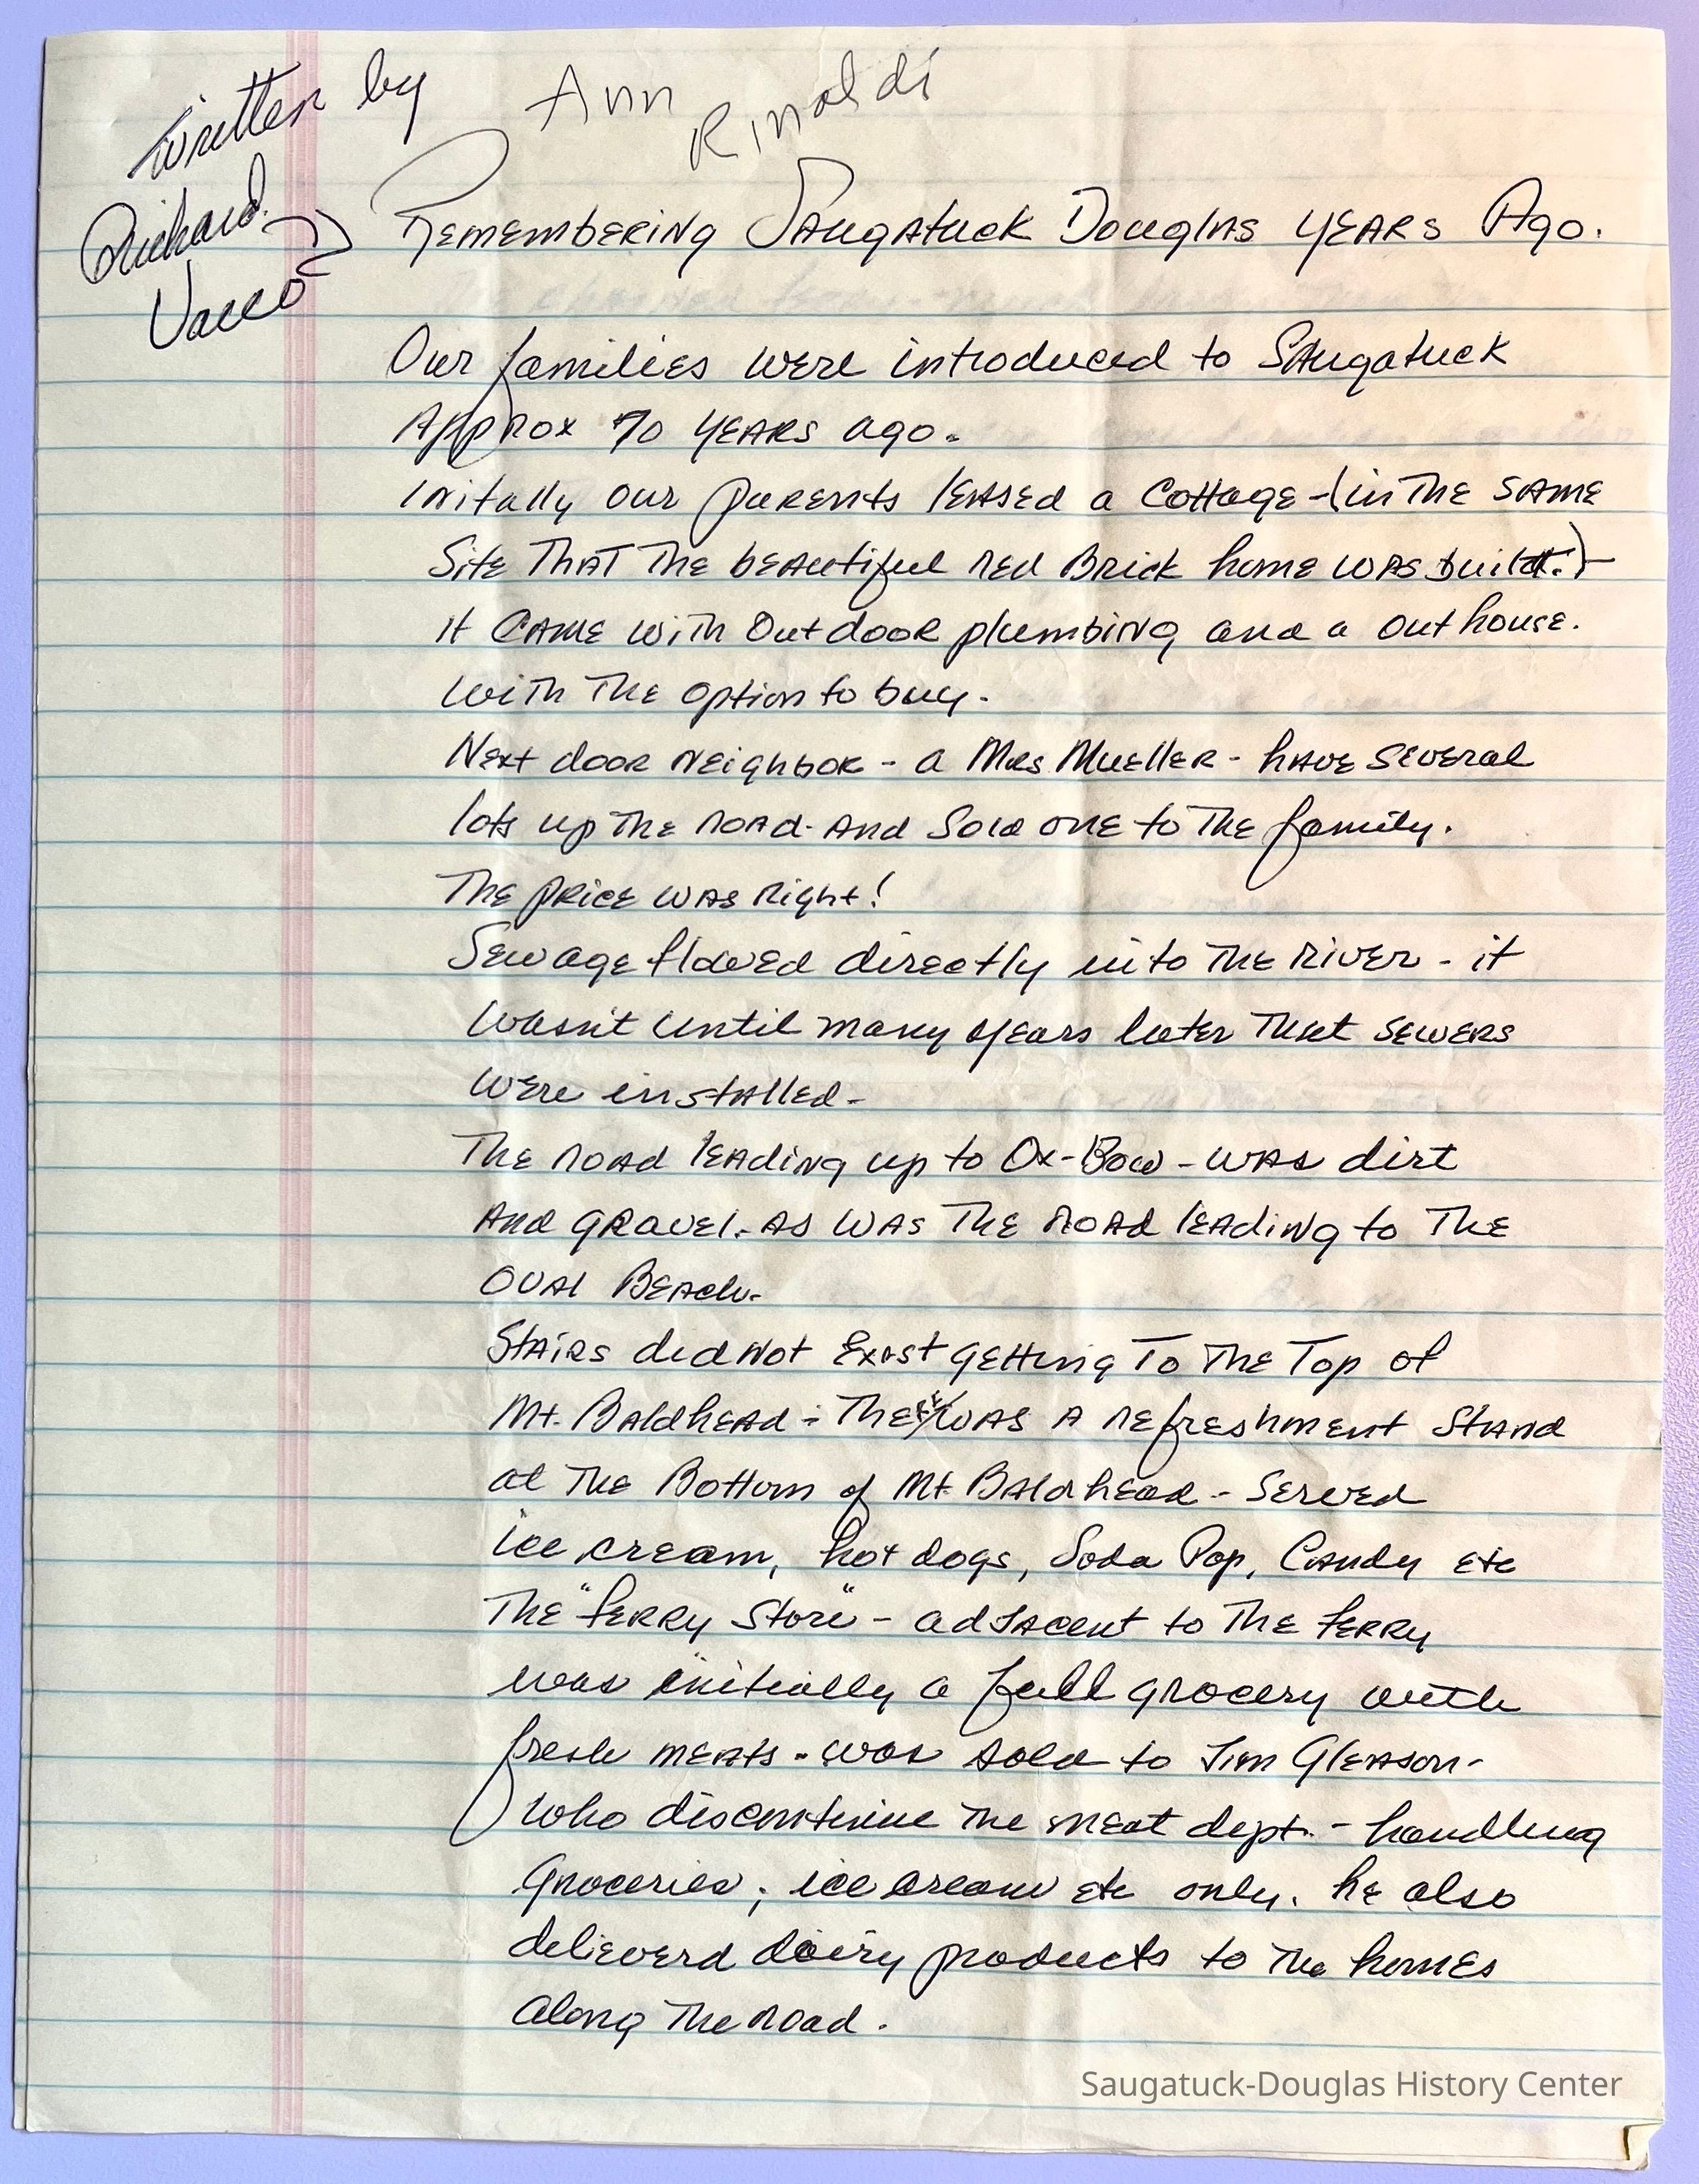 Written by Ann Rinaldi
Richard
Vacco
Remembering Saugatuck Douglas years Ago.
Our families were introduced to Saugatuck
Approx 70 years ago.
Initally our parents leased a Cottage - (in the same
Site That The beautiful red Brick home was built.) -
it came with Outdoor plumbing and a out house.
With The option to buy.
Next door neighbor - a Mrs Mueller - have several
lots up The road - And Sold one to The family.
The price was right!
Sewage flowed directly into The River - it
wasn't until many years later That sewers
were installed -
The road leading up to Ox-Bow - was dirt
And gravel - as was The road leading to The
Oval Beach.
Stairs did not Exist getting To The Top of
Mt. Baldhead - There was a refreshment Stand
at The Bottom of Mt Baldhead - Served
ice cream, hot dogs, Soda Pop, Candy etc
The "ferry Store" - adjacent to The ferry
was initially a full grocery with
fresh meats - was sold to Jim Gleason -
who discontinue The meat dept. - handling
Groceries, ice cream etc only. he also
delieverd dairy products to The homes
along The road.
Saugatuck-Douglas History Center